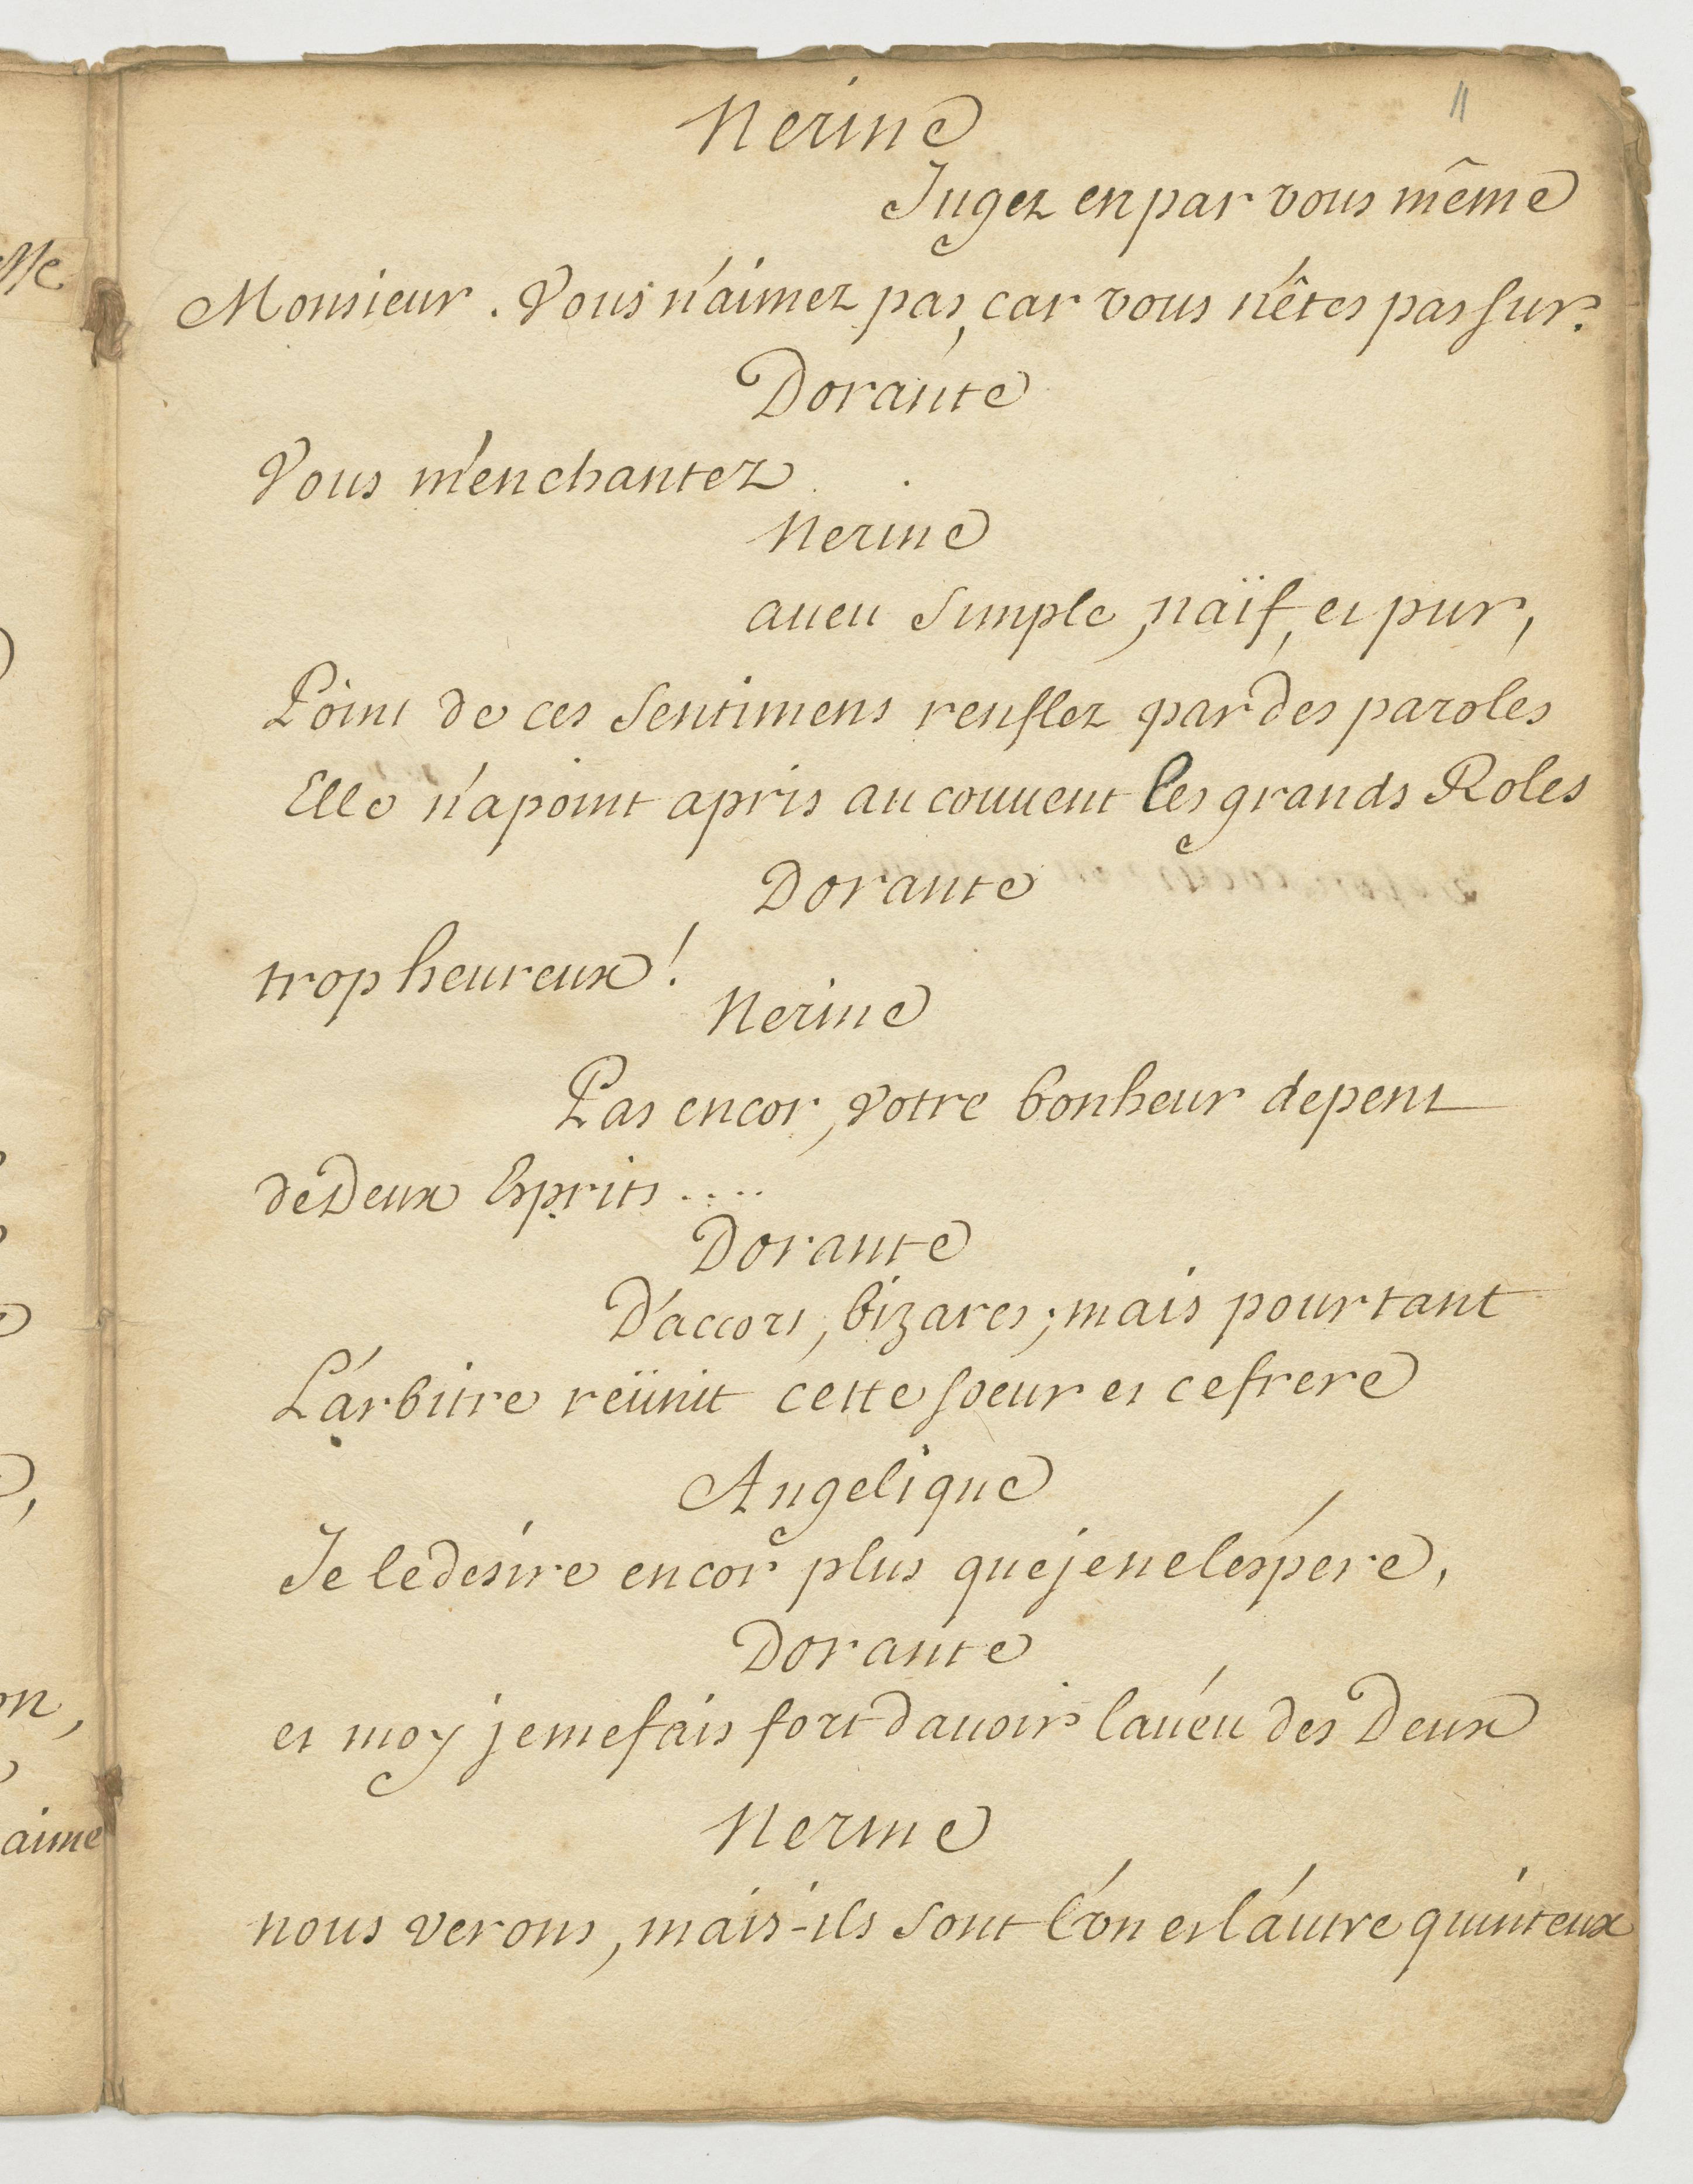 11
Nerine
Jugez en par vous même
Monsieur. Vous n'aimez pas, car vous n'êtes pas sur.
Dorante
Vous m'enchantez.
Nerine
aueu simple, naïf, et pur,
Point de ces sentimens renflez par des paroles
Elle n'a point apris au couuent les grands Roles
Dorante
trop heureux!
Nerine
Pas encor, votre bonheur depent
de Deux Esprits....
Dorante
D'accort, bizares; mais pourtant
L'arbitre reünit cette soeur et ce frere
Angelique
Je le desire encor plus que je ne l'espére,
Dorante
et moy je me fais fort d'auoir l'aueu des Deux
Nerine
nous verons, mais-ils sont l'on et l'autre quinteux
aime